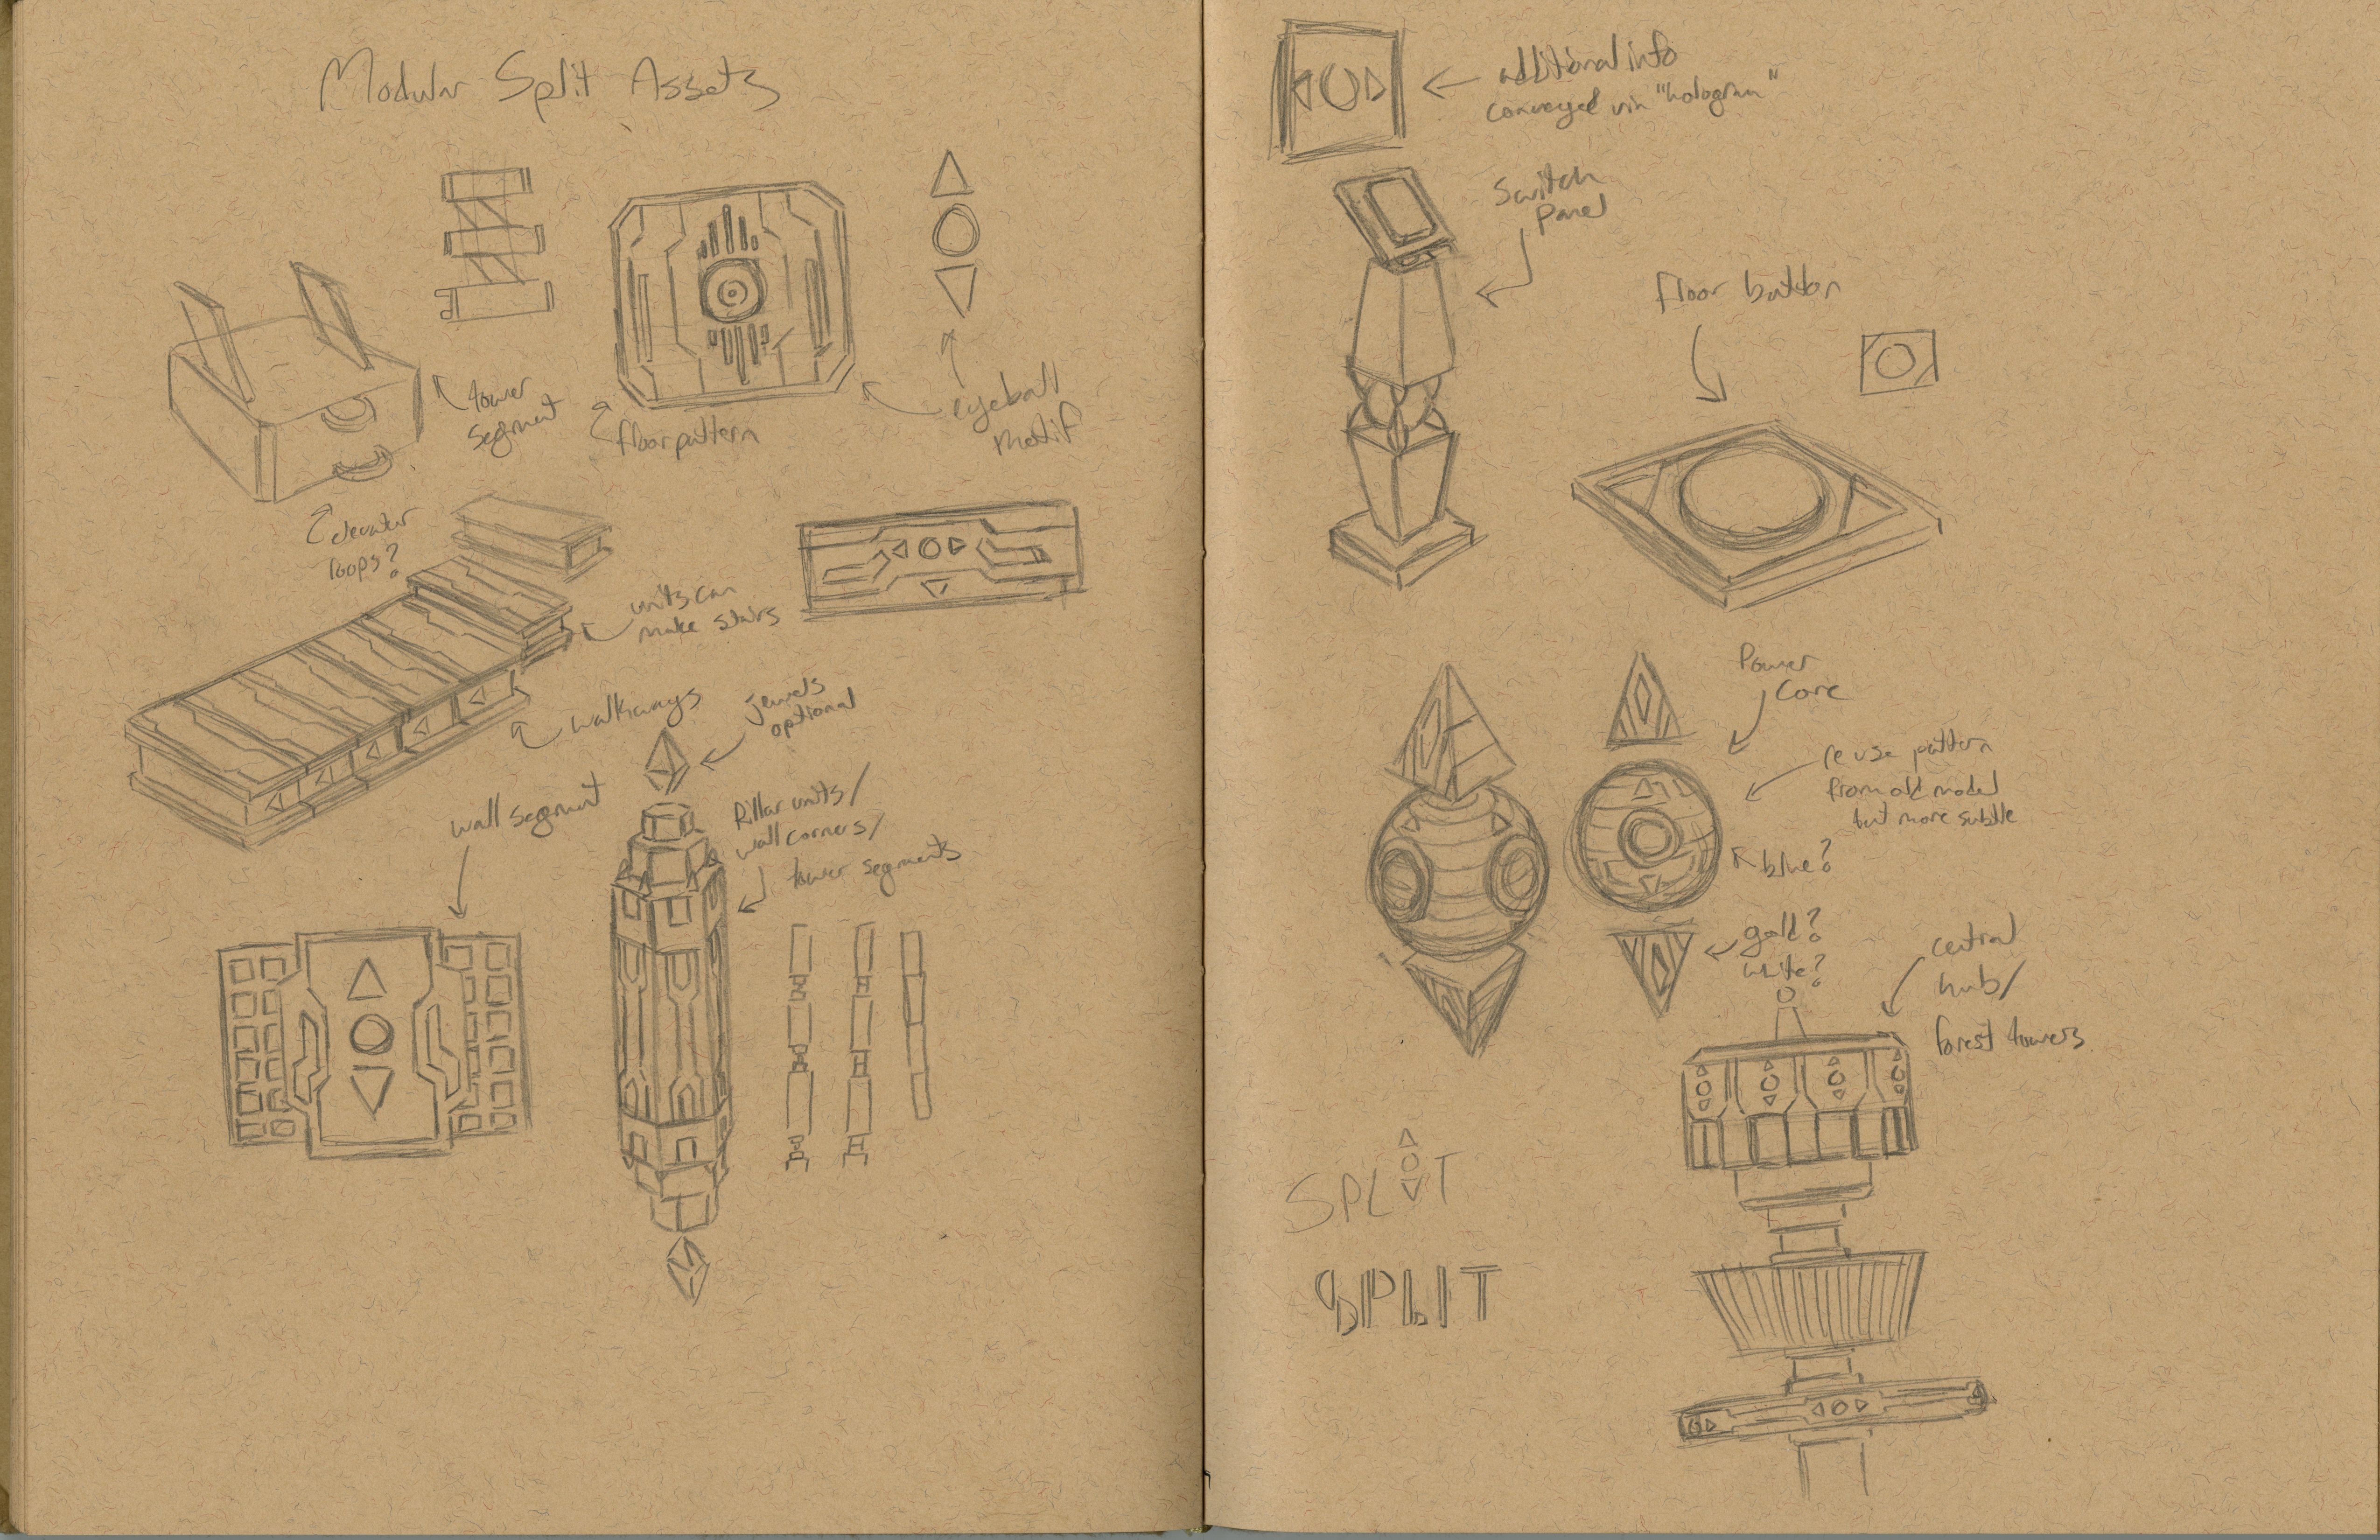 Modular Split Assets
tower
segment
floor pattern
eyeball
motif
elevator
loops?
units can
make stairs
walkways
jewels
optional
wall segment
Pillar units/
wall corners/
tower segments
additional info
conveyed via "hologram"
Switch
Panel
floor button
Power
Core
re use pattern
from old model
but more subtle
blue?
gold?
white?
central
hub/
forest towers
SPLIT
SPLIT